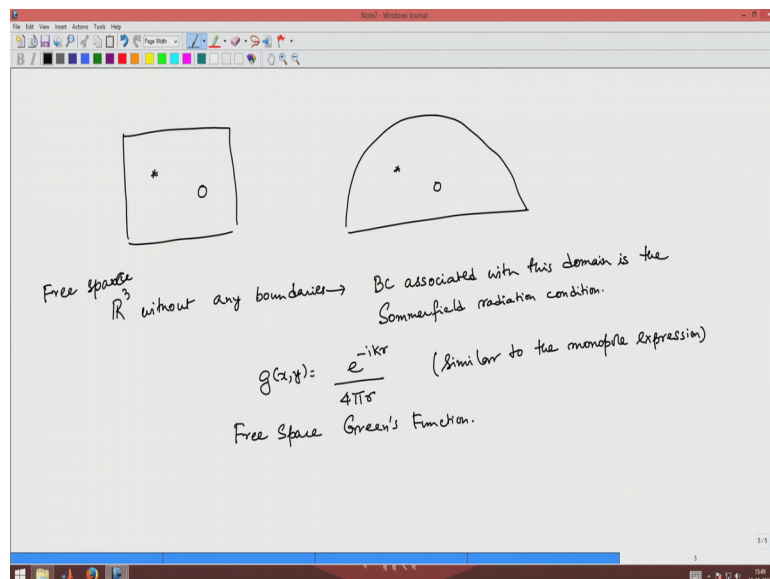 Note2 - Windows Journal
File Edit View Insert Actions Tools Help
Page Width
B I
*
O
*
O
Free space
R³ without any boundaries → BC associated with this domain is the
Sommerfield radiation condition.
g(x,y) = e^{-ikr} / 4πr (Similar to the monopole expression)
Free Space Green's Function.
5/5
5
15:49